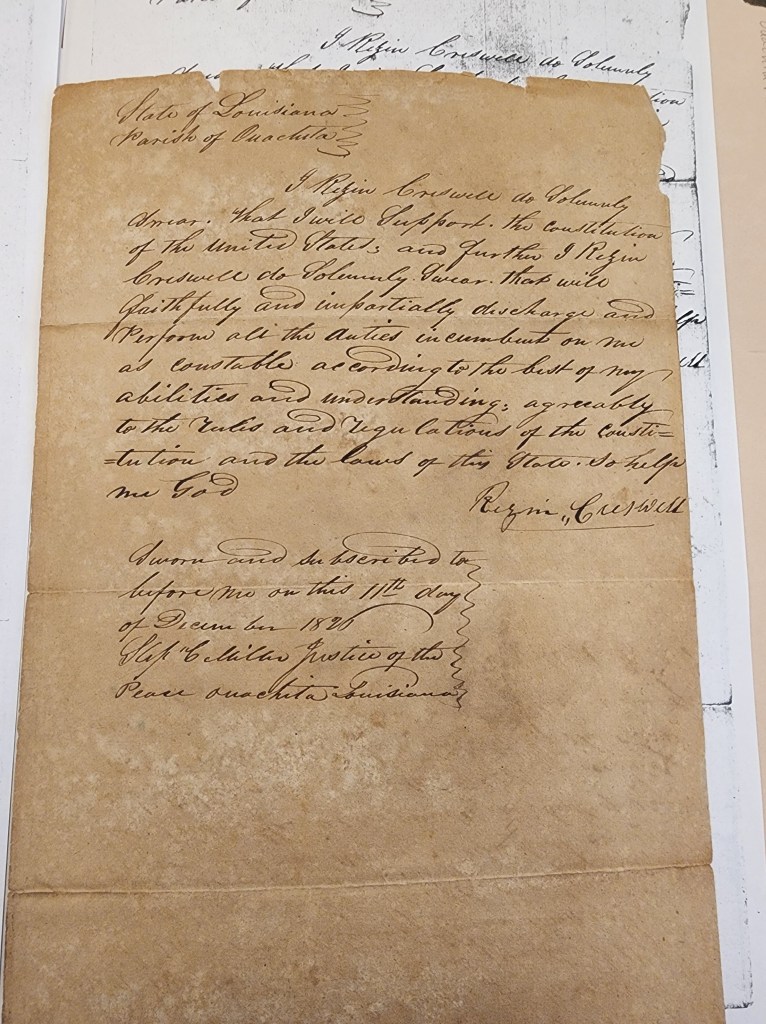 I Rezin Creswell do Solemnly
State of Louisiana
Parish of Ouachita
I Rezin Creswell do Solemnly
Swear. that I will Support. the constitution
of the united States; and further I Rezin
Creswell do Solemnly Swear. that will
faithfully and impartially discharge and
Perform all the duties incumbent on me
as constable according to the best of my
abilities and understanding; agreeably
to the rules and regulations of the consti=
=tution and the laws of this State. So help
me God
Rezin Creswell
Sworn and subscribed to
before me on this 11th day
of December 1826
Justice of the
Peace ouachita Louisiana